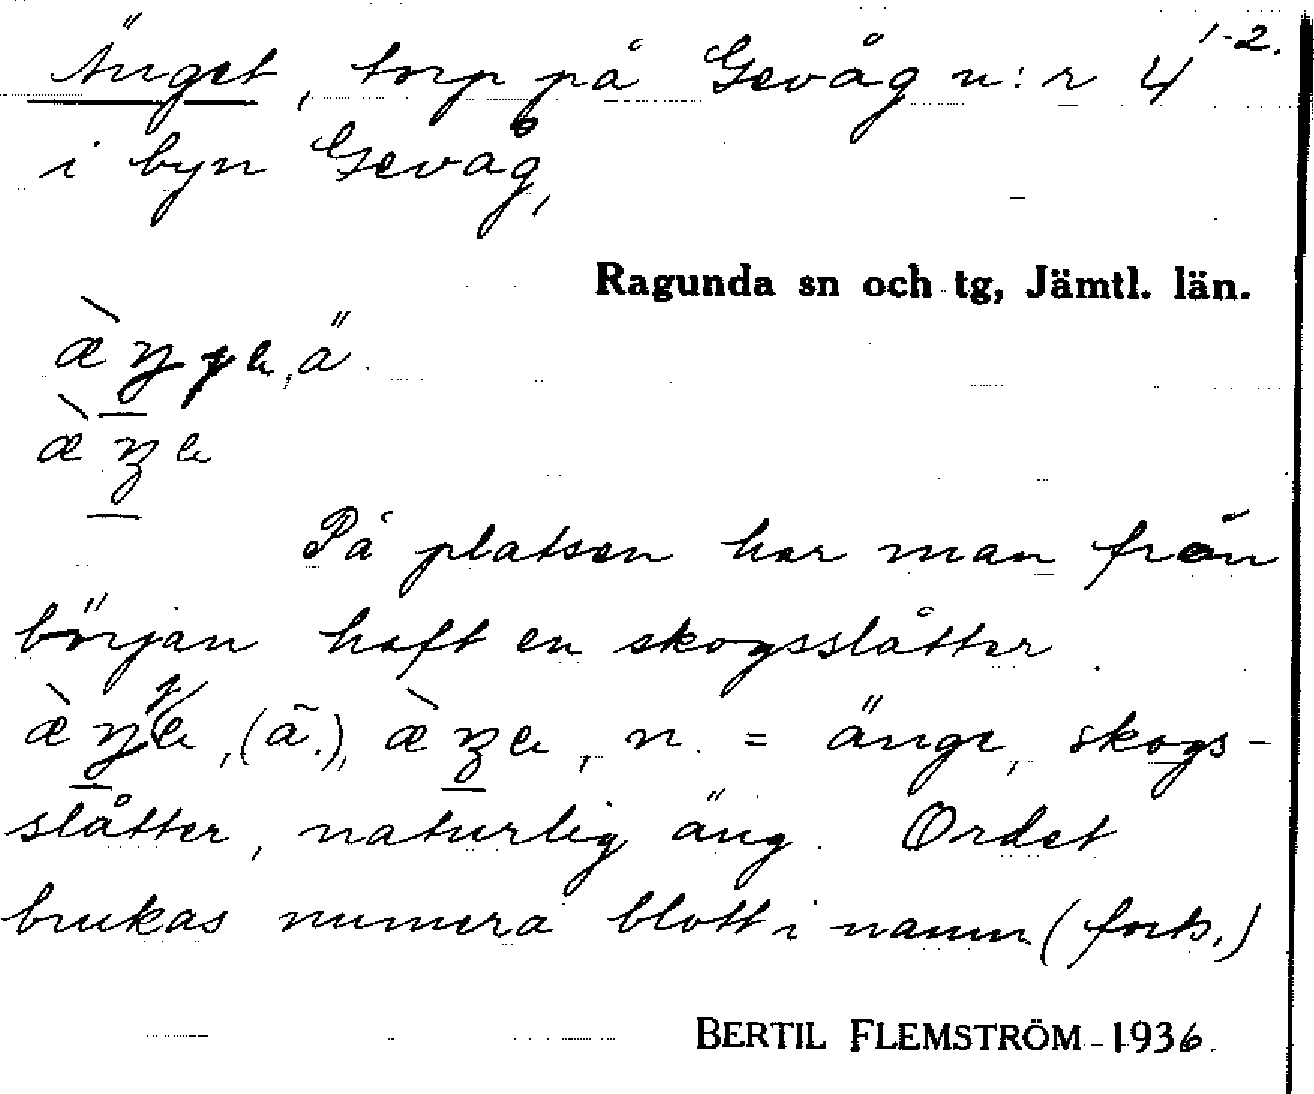 Änget, torp på Gevåg n:r 4 1-2.
i byn Gevåg,
Ragunda sn och tg, Jämtl. län.
På platsen har man från
början haft en skogsslåtter.
n. = änge, skogs-
slåtter, naturlig äng. Ordet
brukas numera blott i namn (forts.)
BERTIL FLEMSTRÖM 1936.